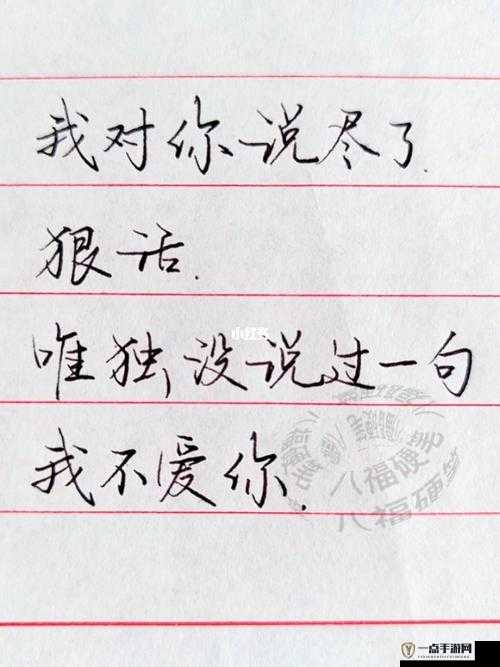 我对你说尽了.
狠话.
唯独没说过一句
我不爱你.
小红书
八福硬笔
八福硬笔
一点手游网